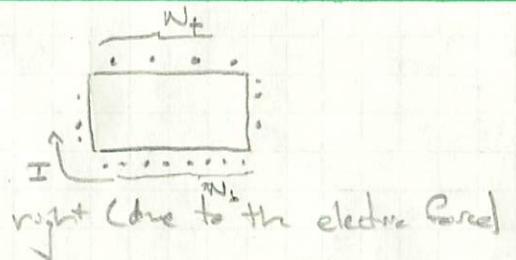 N+
I
N-
right (due to the electric force)